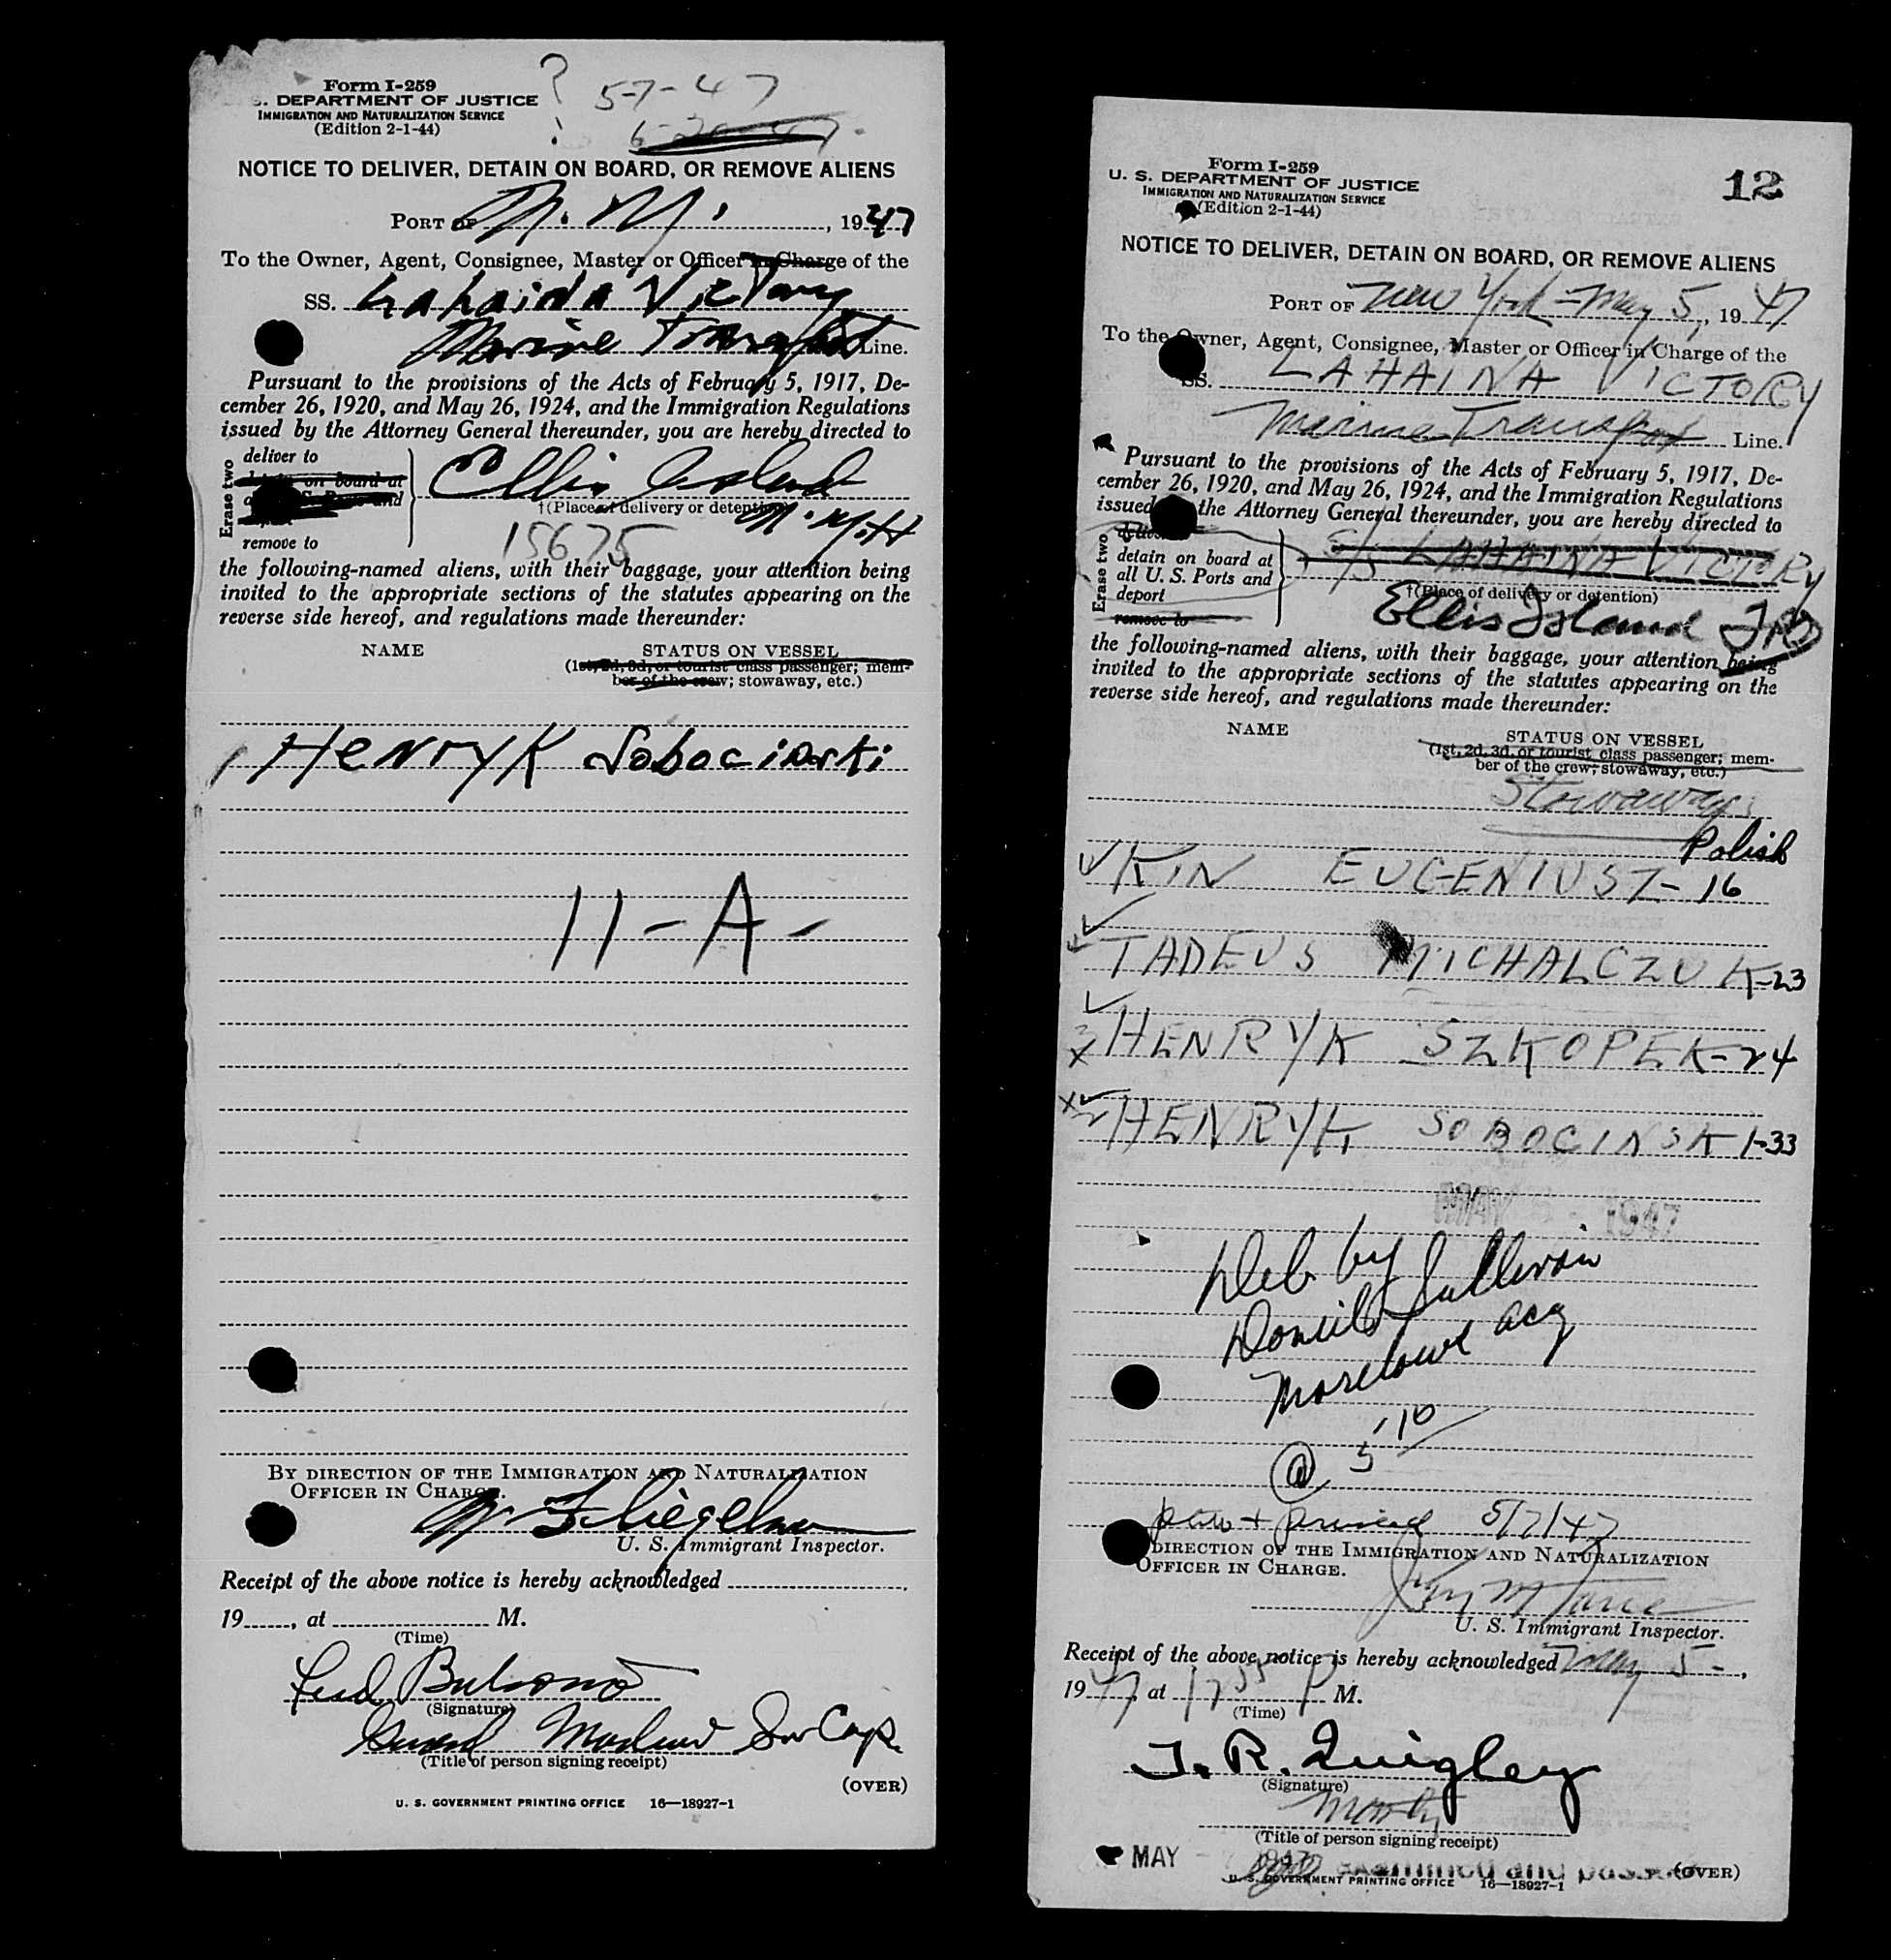 Form I-259
S. DEPARTMENT OF JUSTICE
IMMIGRATION AND NATURALIZATION SERVICE
(Edition 2-1-44)
?
5-7-47
NOTICE TO DELIVER, DETAIN ON BOARD, OR REMOVE ALIENS
PORT OF N. Y. , 1947
To the Owner, Agent, Consignee, Master or Officer in Charge of the
SS. Lahaina Victory
Marine Transport Line.
Pursuant to the provisions of the Acts of February 5, 1917, De-
cember 26, 1920, and May 26, 1924, and the Immigration Regulations
issued by the Attorney General thereunder, you are hereby directed to
Erase two
deliver to
on board at
and
remove to
Ellis Island
†(Place of delivery or detention)
N.Y.H
15675
the following-named aliens, with their baggage, your attention being
invited to the appropriate sections of the statutes appearing on the
reverse side hereof, and regulations made thereunder:
NAME STATUS ON VESSEL
(1st, 2d, 3d, or tourist class passenger; mem-
ber of the crew; stowaway, etc.)
HENRYK Sobocinski
11-A-
BY DIRECTION OF THE IMMIGRATION AND NATURALIZATION
OFFICER IN CHARGE.
U. S. Immigrant Inspector.
Receipt of the above notice is hereby acknowledged
19 , at M.
(Time)
(Signature)
Guard
(Title of person signing receipt)
(OVER)
U. S. GOVERNMENT PRINTING OFFICE 16—18927-1
Form I-259
U. S. DEPARTMENT OF JUSTICE
IMMIGRATION AND NATURALIZATION SERVICE
(Edition 2-1-44)
12
NOTICE TO DELIVER, DETAIN ON BOARD, OR REMOVE ALIENS
PORT OF New York - May 5, 1947
To the Owner, Agent, Consignee, Master or Officer in Charge of the
SS. LAHAINA VICTORY
Marine Transport Line.
Pursuant to the provisions of the Acts of February 5, 1917, De-
cember 26, 1920, and May 26, 1924, and the Immigration Regulations
issued the Attorney General thereunder, you are hereby directed to
Erase two
detain on board at
all U. S. Ports and
deport
remove to
S/S LAHAINA VICTORY
†(Place of delivery or detention)
Ellis Island
the following-named aliens, with their baggage, your attention being
invited to the appropriate sections of the statutes appearing on the
reverse side hereof, and regulations made thereunder:
NAME STATUS ON VESSEL
(1st, 2d, 3d, or tourist class passenger; mem-
ber of the crew; stowaway, etc.)
Stowaways
Polish
KIN EUGENIUSZ-16
TADEUS MICHALCZUK-23
HENRYK SZKOPEK-24
HENRYK SOBOCINSKI-33
MAY 1947
Del. by
Sullivan
@ 5:10
5/7/47
DIRECTION OF THE IMMIGRATION AND NATURALIZATION
OFFICER IN CHARGE.
U. S. Immigrant Inspector.
Receipt of the above notice is hereby acknowledged May 5 - ,
1947, at P M.
(Time)
J. R. Quigley
(Signature)
(Title of person signing receipt)
MAY 1947 examined and passed (OVER)
U. S. GOVERNMENT PRINTING OFFICE 16—18927-1